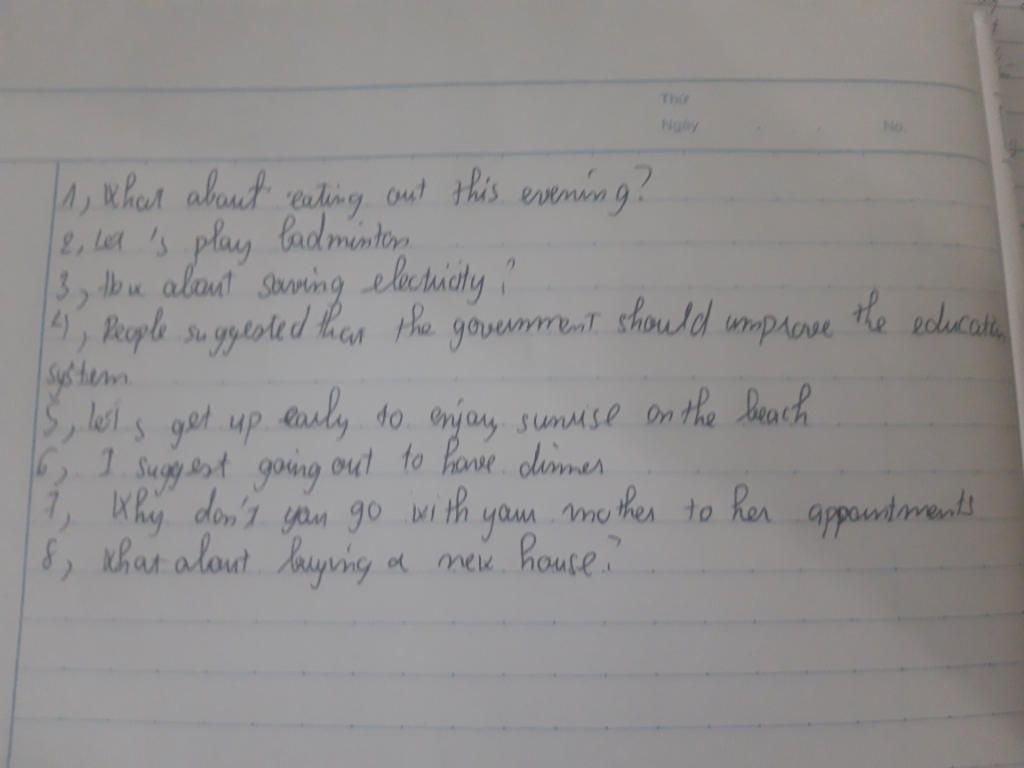 Thứ
Ngày No.
1, What about eating out this evening?
2, Let 's play badminton
3, How about saving electricity?
4, People suggested that the government should improve the education
system
5, let's get up early to enjoy sunrise on the beach
6, I suggest going out to have dinner
7, Why don't you go with your mother to her appointments
8, What about buying a new house?